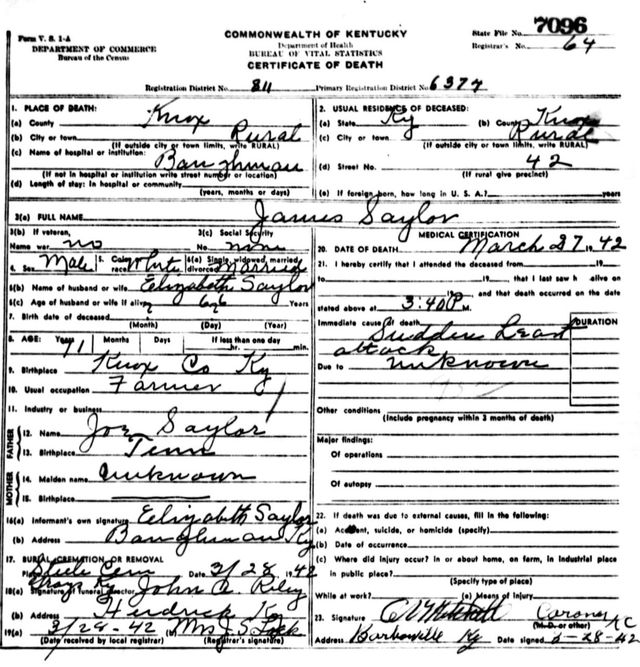 Form V. S. 1-A
DEPARTMENT OF COMMERCE
Bureau of the Census
COMMONWEALTH OF KENTUCKY
Department of Health
BUREAU OF VITAL STATISTICS
CERTIFICATE OF DEATH
State File No. 7096
Registrar's No. 64
Registration District No. 811 Primary Registration District No. 6377
1. PLACE OF DEATH:
(a) County Knox
(b) City or town Rural
(If outside city or town limits, write RURAL)
(c) Name of hospital or institution:
Baughman
(If not in hospital or institution write street number or location)
(d) Length of stay: In hospital or community
(years, months or days)
2. USUAL RESIDENCE OF DECEASED:
(a) State Ky (b) County Knox
(c) City or town Rural
(If outside city or town limits, write RURAL)
(d) Street No. 42
(If rural give precinct)
(e) If foreign born, how long in U. S. A.? years
3(a) FULL NAME James Saylor
3(b) If veteran, 3(c) Social Security
Name war no No. none
4. Sex Male 5. Color or race White 6(a) Single, widowed, married, divorced Married
6(b) Name of husband or wife Elizabeth Saylor
6(c) Age of husband or wife if alive 66 Years
7. Birth date of deceased
(Month) (Day) (Year)
8. AGE: Years Months Days If less than one day
71 hr. min.
9. Birthplace Knox Co Ky
10. Usual occupation Farmer
11. Industry or business
FATHER
12. Name Joe Saylor
13. Birthplace Tenn
MOTHER
14. Maiden name Unknown
15. Birthplace
16(a) Informant's own signature Elizabeth Saylor
(b) Address Baughman Ky
17. BURIAL, CREMATION, OR REMOVAL
Place Steele Cem Date 3/28 1942
Gray Ky
18(a) Signature of funeral director John A. Riley
(b) Address Ky
19(a) 3/28-42 Mrs J. S. Lock
(Date received by local registrar) (Registrar's signature)
MEDICAL CERTIFICATION
20. DATE OF DEATH March 27, 1942
21. I hereby certify that I attended the deceased from 19
to 19 that I last saw h alive on
19 and that death occurred on the date
stated above at 3:40 P M.
Immediate cause of death DURATION
Sudden Heart
attack
Due to unknown
Other conditions
(Include pregnancy within 3 months of death)
Major findings:
Of operations
Of autopsy
22. If death was due to external causes, fill in the following:
(a) Accident, suicide, or homicide (specify)
(b) Date of occurrence
(c) Where did injury occur? in or about home, on farm, in industrial place
in public place?
(Specify type of place)
While at work? (e) Means of injury
23. Signature Coroner KC
(M. D. or other)
Address Barbourville Ky Date signed 3-28-42